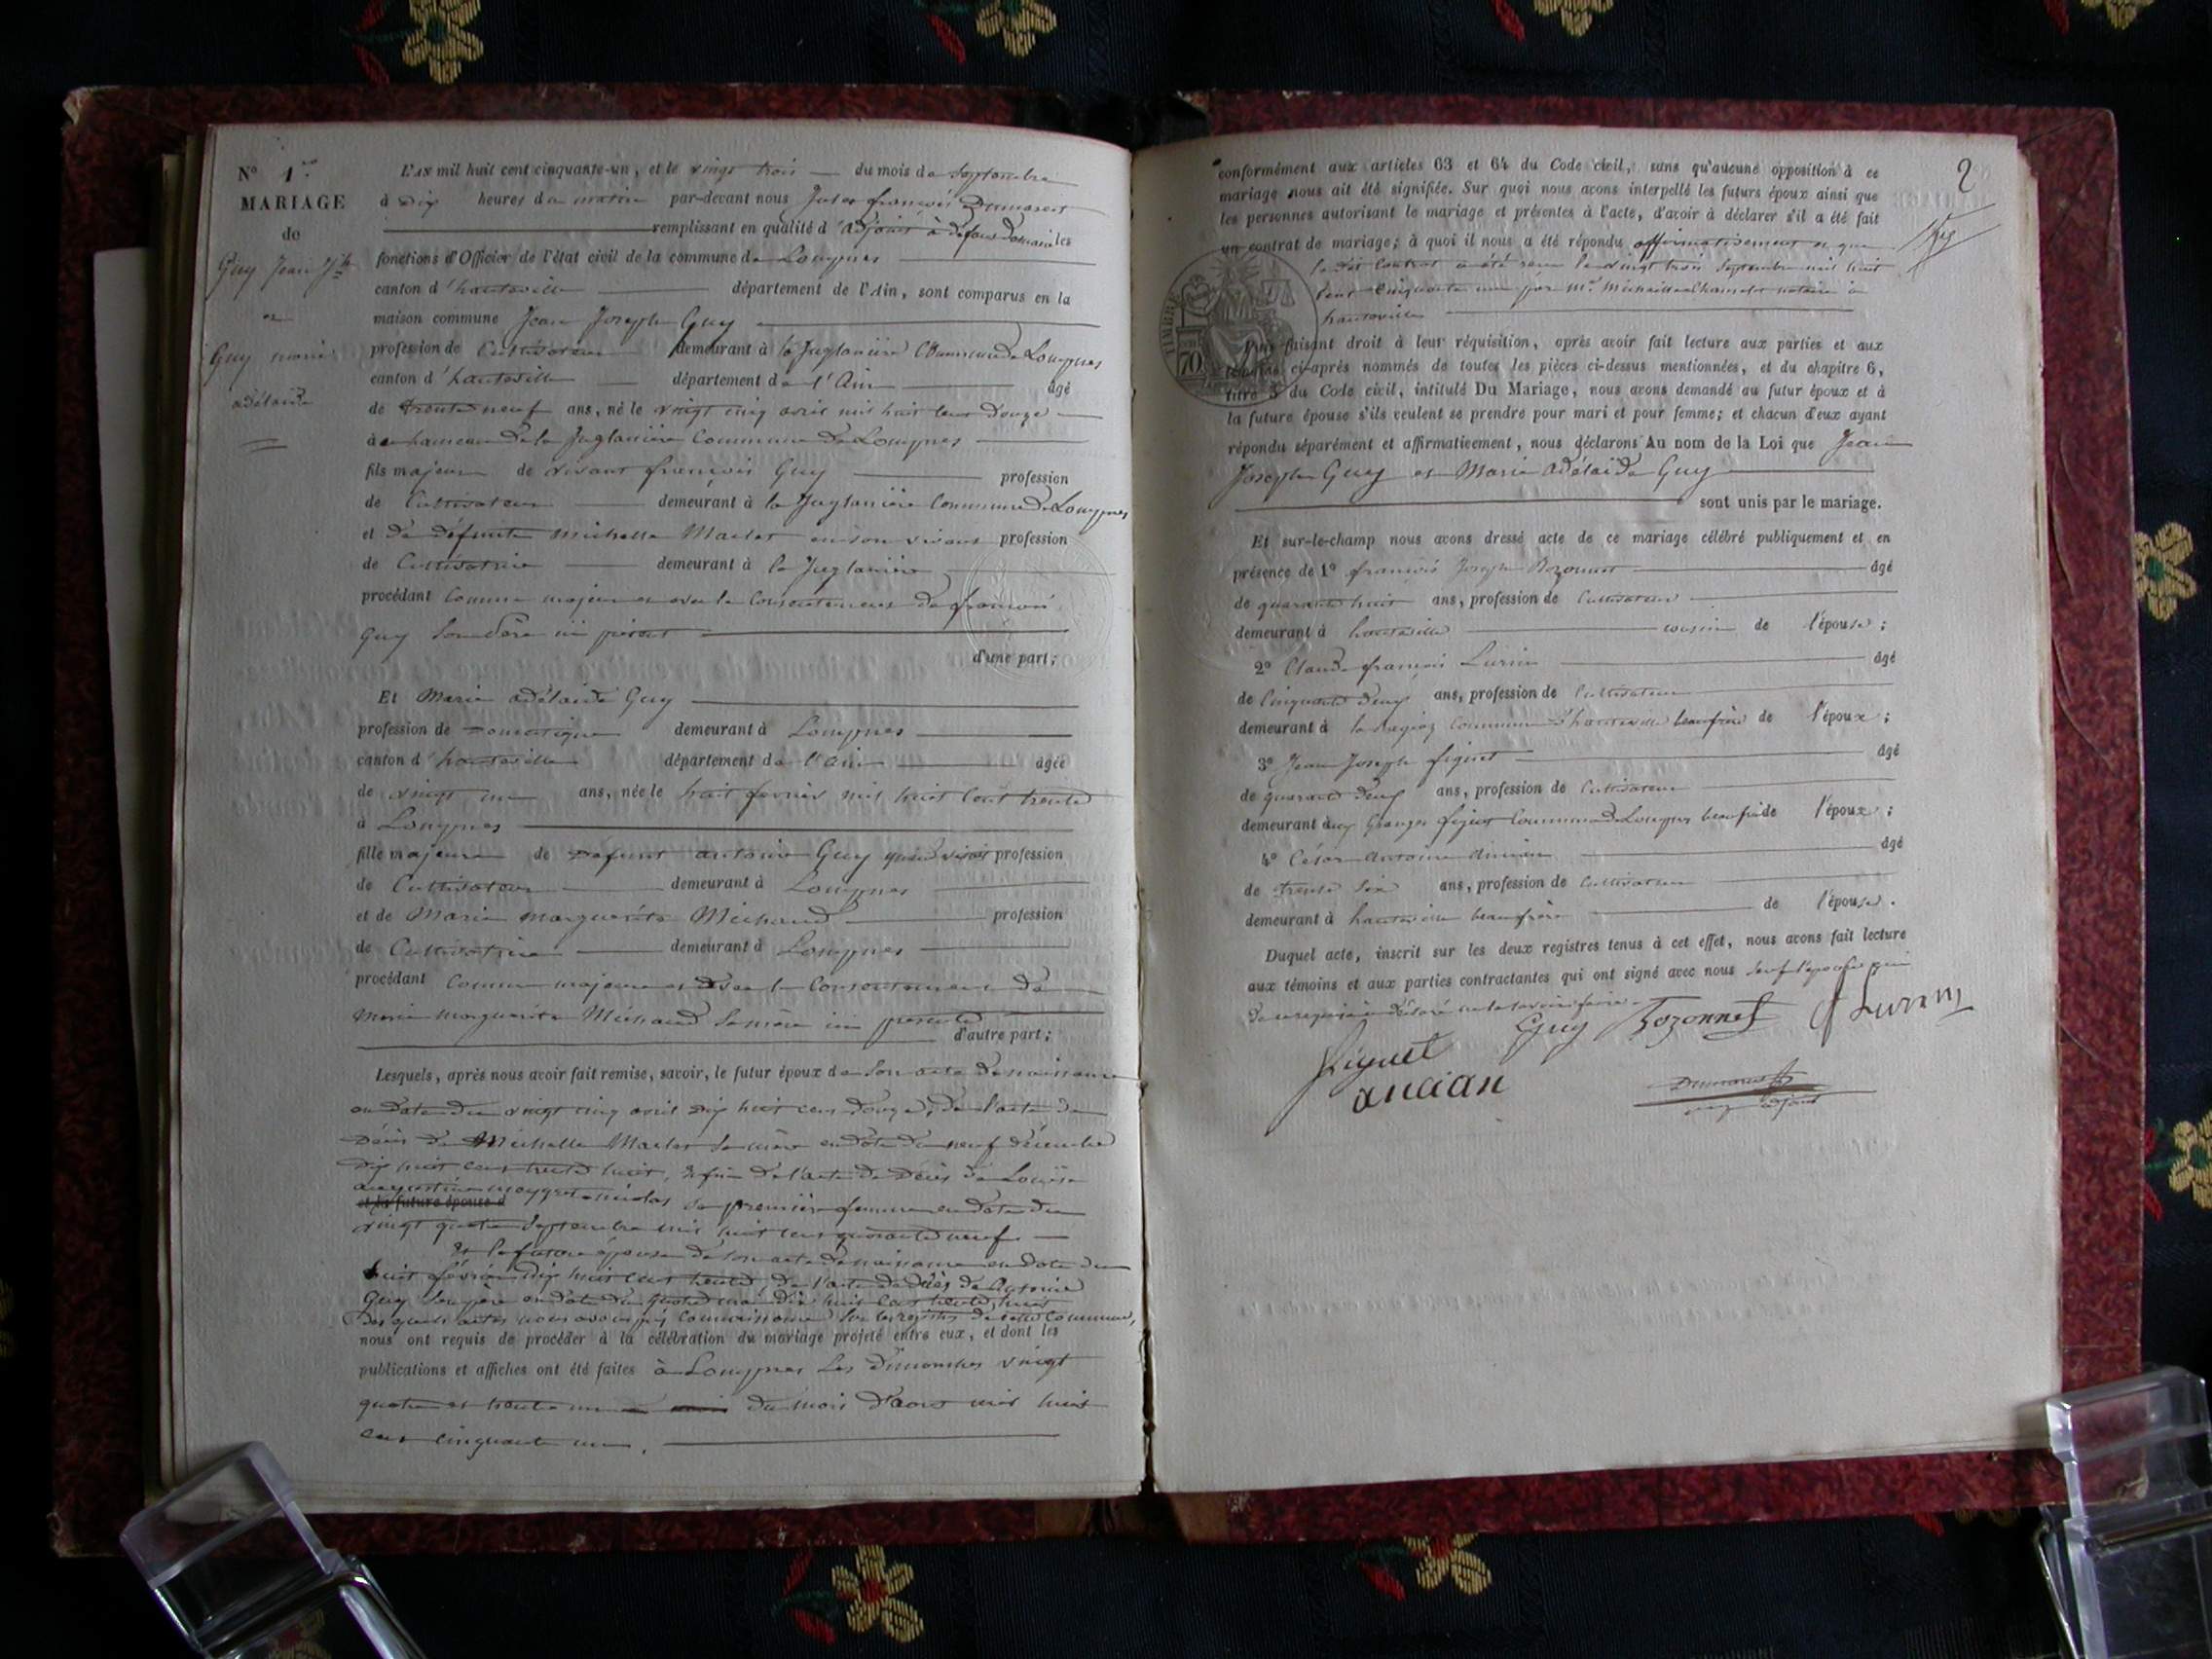 N° 1er
MARIAGE
de
Guy Jean Jph
et
Guy marie
adélaïde
L'AN mil huit cent cinquante-un, et le vingt trois du mois de Septembre
à dix heures du matin par-devant nous Jules françois Dumarest
remplissant en qualité d'adjoint à défaut de maire les
fonctions d'Officier de l'état civil de la commune de Lompnes
canton d'hauteville département de l'Ain, sont comparus en la
maison commune Jean Joseph Guy
profession de Cultivateur demeurant à la Juglanière Commune de Lompnes
canton d'hauteville département de l'Ain âgé
de trente neuf ans, né le vingt cinq avril mil huit cent douze
au hameau de la Juglanière Commune de Lompnes
fils majeur de vivant françois Guy profession
de Cultivateur demeurant à la Juglanière Commune de Lompnes
et de défunte Michelle Marlet en son vivant profession
de Cultivatrice demeurant à la Juglanière
procédant Comme majeur et avec le Consentement de françois
Guy Son Père ici présent
d'une part;
Et Marie adélaïde Guy
profession de Domestique demeurant à Lompnes
canton d'hauteville département de l'Ain âgée
de vingt un ans, née le huit février mil huit cent trente
à Lompnes
fille majeure de défunt antoine Guy quand vivait profession
de Cultivateur demeurant à Lompnes
et de Marie marguerite Michaud profession
de Cultivatrice demeurant à Lompnes
procédant Comme majeure et avec le Consentement de
Marie marguerite Michaud Sa mère ici présente
d'autre part;
Lesquels, après nous avoir fait remise, savoir, le futur époux de Son acte de naissance
en date du vingt cinq avril dix huit cent douze, de l'acte de
Décès de Michelle Marlet Sa mère en date du neuf décembre
dix huit cent trente huit, enfin de l'acte de Décès de Louise
augustine nicolas sa première femme en date du
et la future épouse d
vingt quatre Septembre mil huit cent quarante neuf
Et la future épouse de son acte de naissance en date du
huit février dix huit cent trente, de l'acte de décès de Antoine
Guy Son père en date du quatre mai dix huit cent trente huit
Desquels actes nous avons pris connaissance Sur les registres de cette Commune,
nous ont requis de procéder à la célébration du mariage projeté entre eux, et dont les
publications et affiches ont été faites à Lompnes Les dimanches vingt
quatre et trente un du mois d'août mil huit
cent cinquante un.
2
conformément aux articles 63 et 64 du Code civil, sans qu'aucune opposition à ce
mariage nous ait été signifiée. Sur quoi nous avons interpellé les futurs époux ainsi que
les personnes autorisant le mariage et présentes à l'acte, d'avoir à déclarer s'il a été fait
un contrat de mariage; à quoi il nous a été répondu affirmativement et que
le dit Contrat a été reçu le vingt trois Septembre mil huit
cent cinquante un par Me notaire à
hauteville
TIMBRE
70
faisant droit à leur réquisition, après avoir fait lecture aux parties et aux
témoins ci-après nommés de toutes les pièces ci-dessus mentionnées, et du chapitre 6,
titre 5 du Code civil, intitulé Du Mariage, nous avons demandé au futur époux et à
la future épouse s'ils veulent se prendre pour mari et pour femme; et chacun d'eux ayant
répondu séparément et affirmativement, nous déclarons Au nom de la Loi que Jean
Joseph Guy et Marie Adélaïde Guy
sont unis par le mariage.
Et sur-le-champ nous avons dressé acte de ce mariage célébré publiquement et en
présence de 1° françois Joseph Bozonnet âgé
de quarante huit ans, profession de Cultivateur
demeurant à hauteville cousin de l'épouse;
2° Claude françois Lurin âgé
de Cinquante deux ans, profession de Cultivateur
demeurant à Commune d'hauteville beaufrère de l'époux;
3° Jean Joseph figuet âgé
de quarante deux ans, profession de Cultivateur
demeurant aux Granges figuet Commune de Lompnes beaufrère de l'époux;
4° César Antoine Ancian âgé
de trente Six ans, profession de Cultivateur
demeurant à hauteville beaufrère de l'épouse.
Duquel acte, inscrit sur les deux registres tenus à cet effet, nous avons fait lecture
aux témoins et aux parties contractantes qui ont signé avec nous Sauf l'épouse qui
de ce requise a déclaré ne le savoir faire
Guy Bozonnet Lurin
figuet
ancian
Dumarest
adjoint